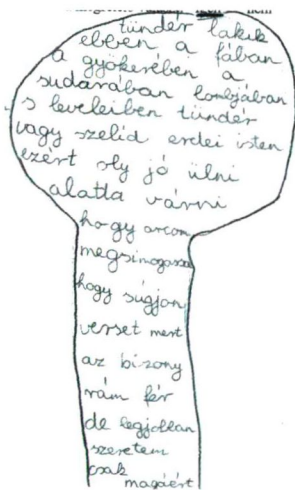 tündér lakik
ebben a fában
a gyökerében a
sudarában lombjában
s leveleiben tündér
vagy szelíd erdei isten
ezért oly jó ülni
alatta várni
hogy arcom
megsimogassa
hogy súgjon
verset mert
az bizony
rám fér
de legjobban
szeretem
csak
magáért